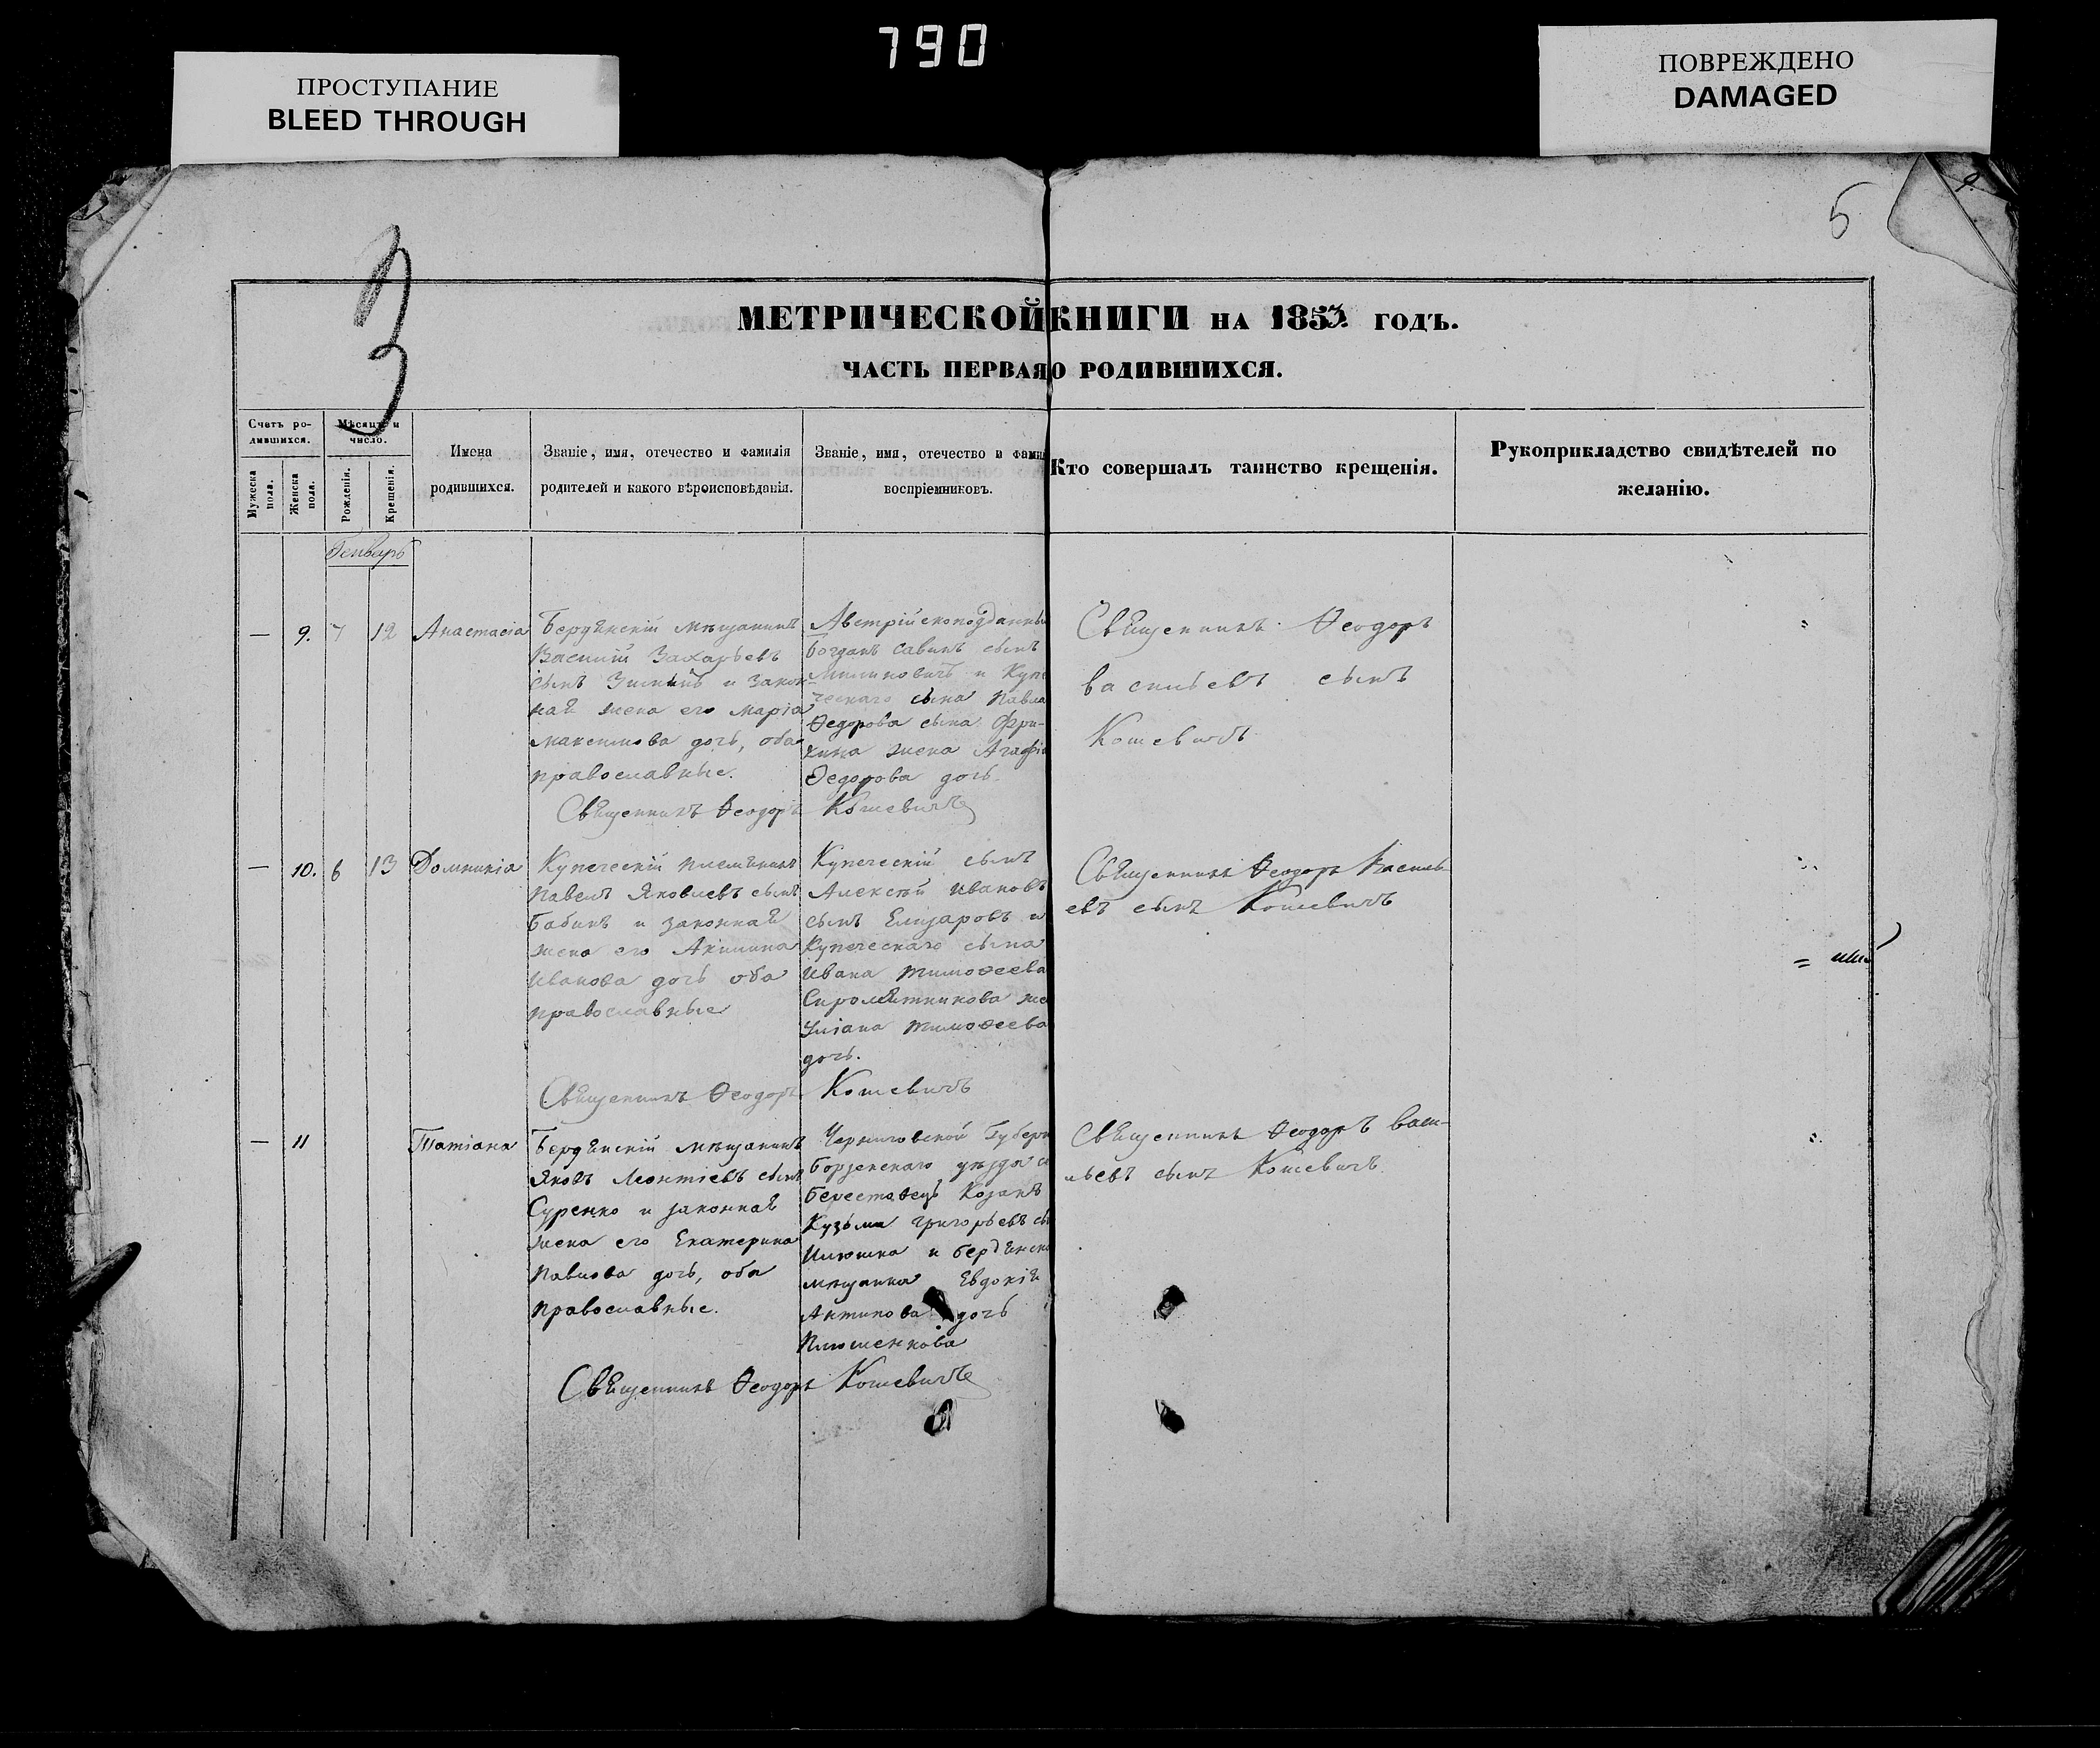 790
ПРОСТУПАНИЕ
BLEED THROUGH
ПОВРЕЖДЕНО
DAMAGED
5
3
МЕТРИЧЕСКОЙ КНИГИ НА 1853. ГОДЪ.
ЧАСТЬ ПЕРВАЯ О РОДИВШИХСЯ.
Счетъ ро-
дившихся.
Мужеска
пола.
Женска
пола.
Мѣсяцъ и
число.
Рожденія.
Крещенія.
Имена
родившихся.
Званіе, имя, отечество и фамилія
родителей и какого вѣроисповѣданія.
Званіе, имя, отечество и фами
воспріемниковъ.
Кто совершалъ таинство крещенія.
Рукоприкладство свидѣтелей по
желанію.
Генварь
— 9. 7 12 Анастасіа
Бердянскій мѣщанинъ
Василій Захарьевъ
сынъ и закон-
ная жена его Маріа
Максимова дочь, оба
православные.
Австрійскоподданны
Богданъ Савинъ сынъ
Милиновичъ и Купе
ческаго сына Павла
Ѳедорова сына Фри-
кина жена Агафіа
Ѳедорова дочь.
Священникъ Ѳеодоръ
Васильевъ сынъ
Кошевичъ
Священникъ Ѳеодоръ Кошевичъ
— 10. 6 13 Домникіа
Купеческій племянникъ
Павелъ Яковлевъ сынъ
Бабинъ и законная
жена его Акилина
Иванова дочь оба
православные
Купеческій сынъ
Алексѣй Ивановъ
сынъ Елизаровъ и
Купеческаго сына
Ивана Тимоѳеева
Сиромятникова же
Уліана Тимоѳеева
дочь.
Священникъ Ѳеодоръ Василь-
евъ сынъ Кошевичъ
Священникъ Ѳеодоръ Кошевичъ
— 11 Татіана
Бердянскій мѣщанинъ
Яковъ Леонтіевъ сынъ
Суренко и законная
жена его Екатерина
Павлова дочь, оба
православные.
Черниговской Губерн
Борзенскаго уѣзда с
Берестовецъ Козакъ
Кузьма Григорьевъ сы
Илюшка и Бердянска
мѣщанка Евдокія
Антипова дочь
Плюшенкова
Священникъ Ѳеодоръ Васи-
льевъ сынъ Кошевичъ.
Священникъ Ѳеодоръ Кошевичъ